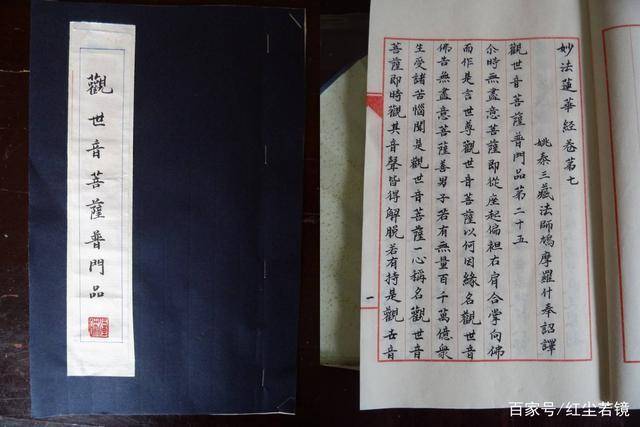 觀世音菩薩普門品
妙法蓮華經卷第七
姚秦三藏法師鳩摩羅什奉詔譯
觀世音菩薩普門品第二十五
尒時無盡意菩薩即從座起偏袒右肩合掌向佛
而作是言世尊觀世音菩薩以何因緣名觀世音
佛告無盡意菩薩善男子若有無量百千萬億衆
生受諸苦惱聞是觀世音菩薩一心稱名觀世音
菩薩即時觀其音聲皆得解脫若有持是觀世音
一
百家号/红尘若镜